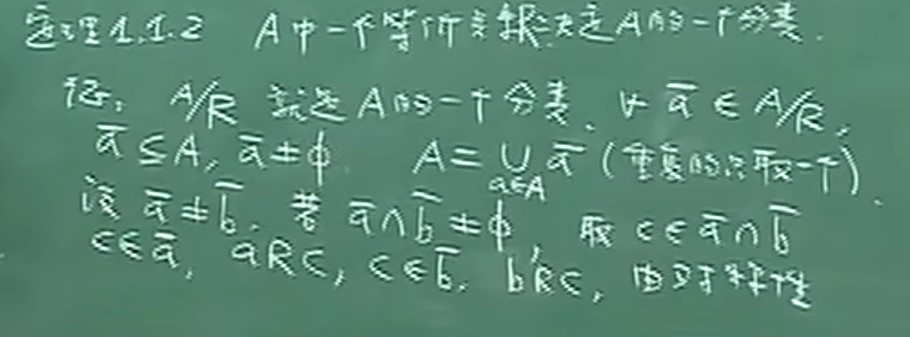 定理1.1.2 A中一个等价关系决定A的一个分类.
证: A/R 就是A的一个分类. ∀ a̅ ∈ A/R,
a̅ ⊆ A, a̅ ≠ ϕ. A = ∪_{a∈A} a̅ (重复的只取一个).
设 a̅ ≠ b̅. 若 a̅ ∩ b̅ ≠ ϕ, 取 c ∈ a̅ ∩ b̅
c ∈ a̅, aRc, c ∈ b̅. bRc, 由对称性